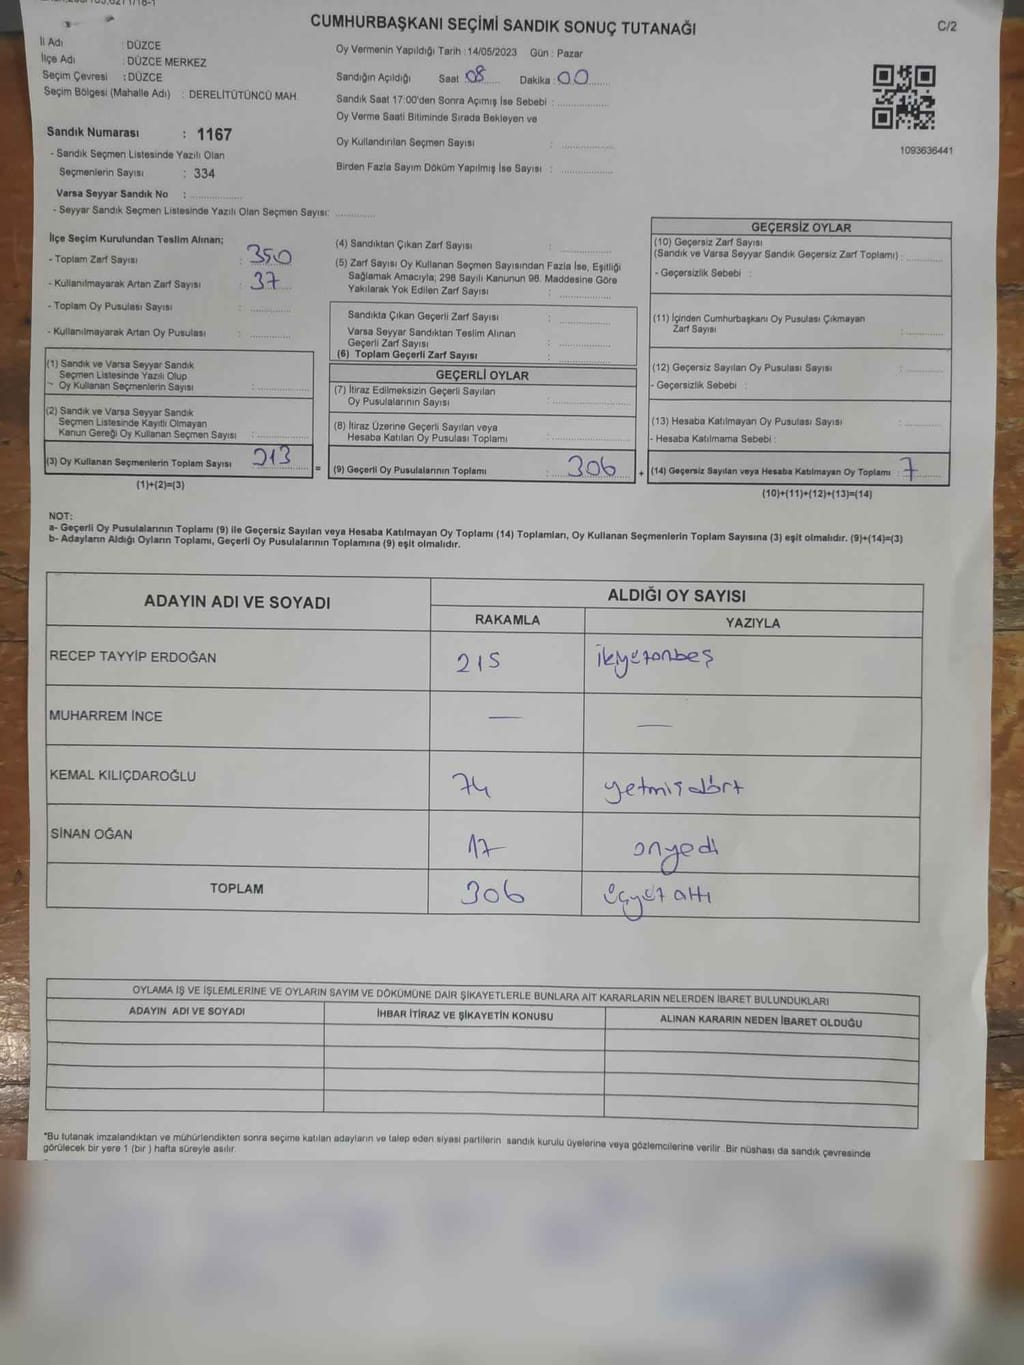 CUMHURBAŞKANI SEÇİMİ SANDIK SONUÇ TUTANAĞI
C/2
İl Adı : DÜZCE
İlçe Adı : DÜZCE MERKEZ
Seçim Çevresi : DÜZCE
Seçim Bölgesi (Mahalle Adı) : DERELİTÜTÜNCÜ MAH.
Sandık Numarası : 1167
- Sandık Seçmen Listesinde Yazılı Olan
Seçmenlerin Sayısı : 334
Varsa Seyyar Sandık No :
- Seyyar Sandık Seçmen Listesinde Yazılı Olan Seçmen Sayısı:
Oy Vermenin Yapıldığı Tarih : 14/05/2023 Gün : Pazar
Sandığın Açıldığı Saat 08 Dakika : 00
Sandık Saat 17:00'den Sonra Açımış İse Sebebi :
Oy Verme Saati Bitiminde Sırada Bekleyen ve
Oy Kullandırılan Seçmen Sayısı :
Birden Fazla Sayım Döküm Yapılmış İse Sayısı :
1093636441
İlçe Seçim Kurulundan Teslim Alınan;
- Toplam Zarf Sayısı : 350
- Kullanılmayarak Artan Zarf Sayısı : 37
- Toplam Oy Pusulası Sayısı :
- Kullanılmayarak Artan Oy Pusulası :
(1) Sandık ve Varsa Seyyar Sandık
Seçmen Listesinde Yazılı Olup
Oy Kullanan Seçmenlerin Sayısı :
(2) Sandık ve Varsa Seyyar Sandık
Seçmen Listesinde Kayıtlı Olmayan
Kanun Gereği Oy Kullanan Seçmen Sayısı :
(3) Oy Kullanan Seçmenlerin Toplam Sayısı 313
(1)+(2)=(3)
(4) Sandıktan Çıkan Zarf Sayısı :
(5) Zarf Sayısı Oy Kullanan Seçmen Sayısından Fazla İse, Eşitliği
Sağlamak Amacıyla; 298 Sayılı Kanunun 98. Maddesine Göre
Yakılarak Yok Edilen Zarf Sayısı :
Sandıkta Çıkan Geçerli Zarf Sayısı :
Varsa Seyyar Sandıktan Teslim Alınan
Geçerli Zarf Sayısı :
(6) Toplam Geçerli Zarf Sayısı :
GEÇERLİ OYLAR
(7) İtiraz Edilmeksizin Geçerli Sayılan
Oy Pusulalarının Sayısı :
(8) İtiraz Üzerine Geçerli Sayılan veya
Hesaba Katılan Oy Pusulası Toplamı :
= (9) Geçerli Oy Pusulalarının Toplamı : 306
GEÇERSİZ OYLAR
(10) Geçersiz Zarf Sayısı
(Sandık ve Varsa Seyyar Sandık Geçersiz Zarf Toplamı) :
- Geçersizlik Sebebi :
(11) İçinden Cumhurbaşkanı Oy Pusulası Çıkmayan
Zarf Sayısı :
(12) Geçersiz Sayılan Oy Pusulası Sayısı :
- Geçersizlik Sebebi :
(13) Hesaba Katılmayan Oy Pusulası Sayısı :
- Hesaba Katılmama Sebebi :
+ (14) Geçersiz Sayılan veya Hesaba Katılmayan Oy Toplamı : 7
(10)+(11)+(12)+(13)=(14)
NOT:
a- Geçerli Oy Pusulalarının Toplamı (9) ile Geçersiz Sayılan veya Hesaba Katılmayan Oy Toplamı (14) Toplamları, Oy Kullanan Seçmenlerin Toplam Sayısına (3) eşit olmalıdır. (9)+(14)=(3)
b- Adayların Aldığı Oyların Toplamı, Geçerli Oy Pusulalarının Toplamına (9) eşit olmalıdır.
ADAYIN ADI VE SOYADI ALDIĞI OY SAYISI
RAKAMLA YAZIYLA
RECEP TAYYİP ERDOĞAN 215 ikiyüzonbeş
MUHARREM İNCE — —
KEMAL KILIÇDAROĞLU 74 yetmişdört
SİNAN OĞAN 17 onyedi
TOPLAM 306 üçyüz altı
OYLAMA İŞ VE İŞLEMLERİNE VE OYLARIN SAYIM VE DÖKÜMÜNE DAİR ŞİKAYETLERLE BUNLARA AİT KARARLARIN NELERDEN İBARET BULUNDUKLARI
ADAYIN ADI VE SOYADI İHBAR İTİRAZ VE ŞİKAYETİN KONUSU ALINAN KARARIN NEDEN İBARET OLDUĞU
*Bu tutanak imzalandıktan ve mühürlendikten sonra seçime katılan adayların ve talep eden siyasi partilerin sandık kurulu üyelerine veya gözlemcilerine verilir. Bir nüshası da sandık çevresinde
görülecek bir yere 1 (bir ) hafta süreyle asılır.